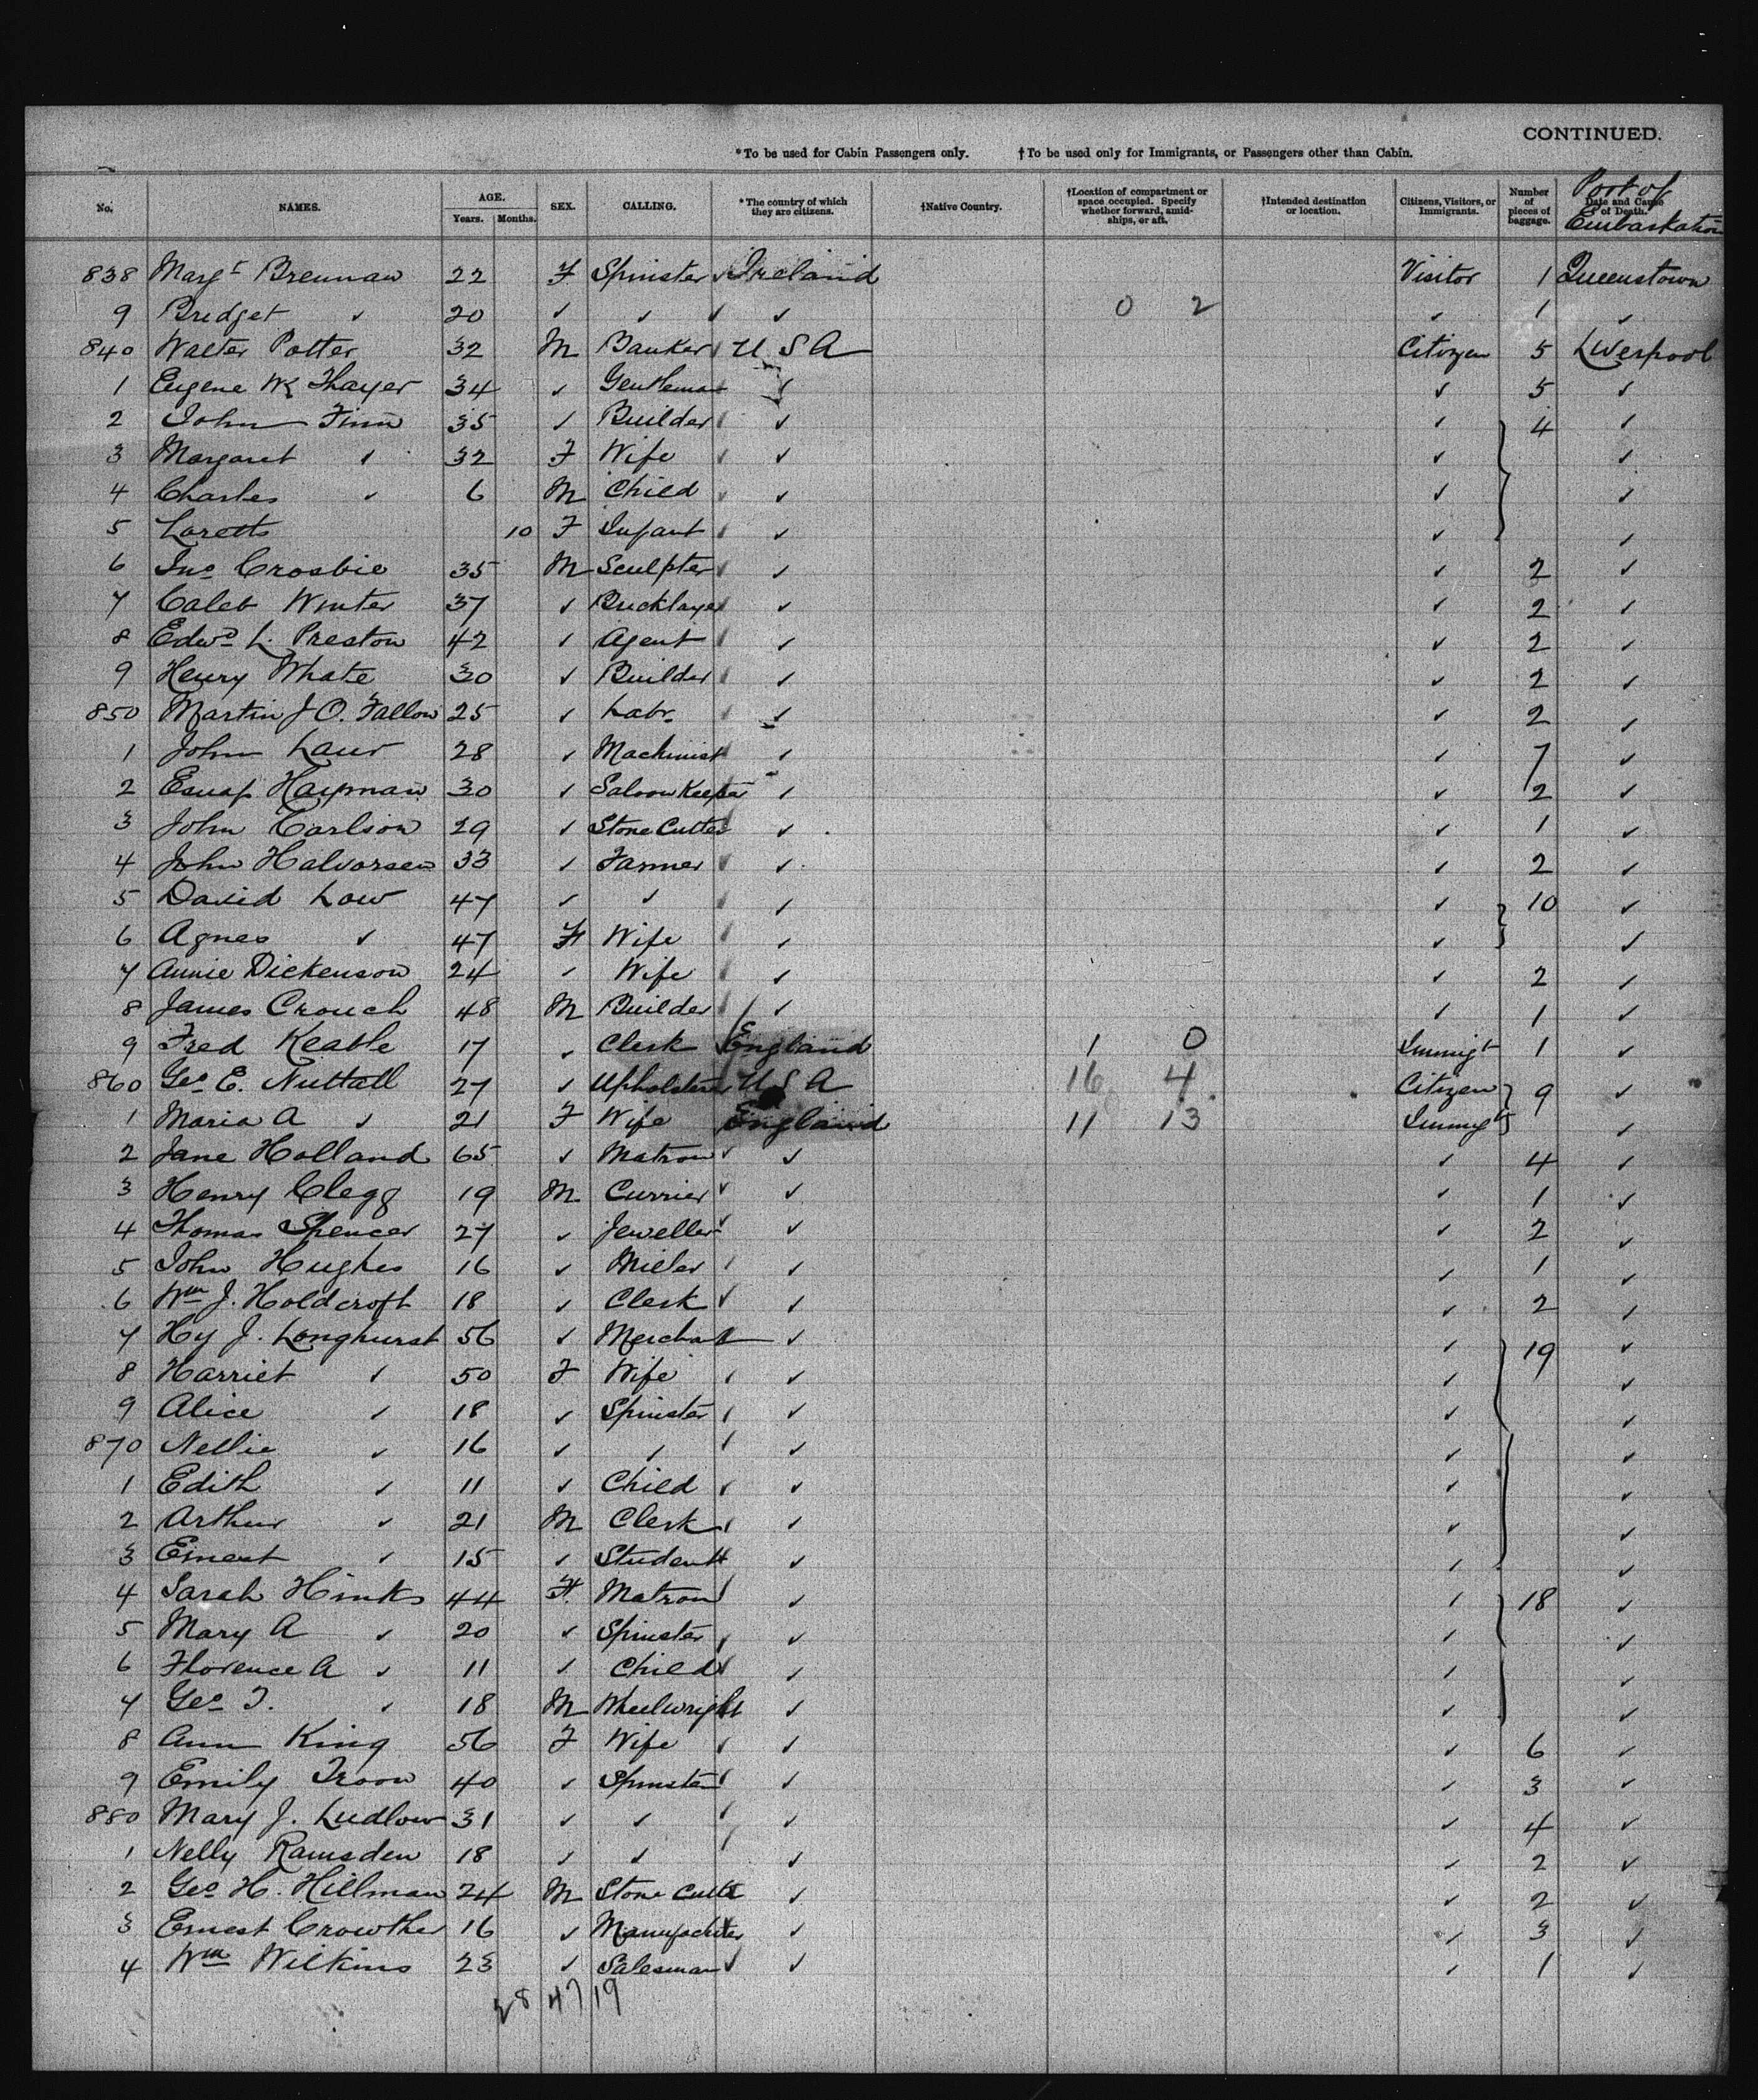 CONTINUED.
*To be used for Cabin Passengers only. †To be used only for Immigrants, or Passengers other than Cabin.
No. NAMES. AGE. Years. Months. SEX. CALLING. *The country of which they are citizens. †Native Country. †Location of compartment or space occupied. Specify whether forward, amidships, or aft. †Intended destination or location. Citizens, Visitors, or Immigrants. Number of pieces of baggage. Date and Cause of Death. Port of Embarkation
838 Margt Brennan 22 F Spinster Ireland Visitor 1 Queenstown
9 Bridget ✓ 20 ✓ ✓ ✓ ✓ 0 2 ✓ 1 ✓
840 Walter Potter 32 M Banker USA Citizen 5 Liverpool
1 Eugene W Thayer 34 ✓ Gentleman ✓ ✓ 5 ✓
2 John Finn 35 ✓ Builder ✓ ✓ 4 ✓
3 Margaret ✓ 32 F Wife ✓ ✓ ✓ ✓
4 Charles ✓ 6 M Child ✓ ✓ ✓ ✓
5 Loretto 10 F Infant ✓ ✓ ✓
6 Jno Crosbie 35 M Sculpter ✓ ✓ 2 ✓
7 Caleb Winter 37 ✓ Bricklayer ✓ ✓ 2 ✓
8 Edwd L. Preston 42 ✓ Agent ✓ ✓ 2 ✓
9 Henry Whate 30 ✓ Builder ✓ ✓ 2 ✓
850 Martin J O. Fallow 25 ✓ Labr. ✓ ✓ 2 ✓
1 John Laur 28 ✓ Machinist ✓ ✓ 7 ✓
2 Haypman 30 ✓ Saloon Keeper ✓ ✓ 2 ✓
3 John Carlson 29 ✓ Stone Cutter ✓ ✓ 1 ✓
4 John Halvorsen 33 ✓ Farmer ✓ ✓ 2 ✓
5 David Low 47 ✓ ✓ ✓ ✓ 10 ✓
6 Agnes ✓ 47 F Wife ✓ ✓ ✓
7 Annie Dickenson 24 ✓ Wife ✓ ✓ 2 ✓
8 James Crouch 48 M Builder ✓ ✓ 1 ✓
9 Fred Keable 17 ✓ Clerk England 1 0 Immigt 1 ✓
860 Geo E. Nuttall 27 ✓ Upholsterer USA 16 4 Citizen 9 ✓
1 Maria A ✓ 21 F Wife England 11 13 Immigt ✓
2 Jane Holland 65 ✓ Matron ✓ ✓ ✓ 4 ✓
3 Henry Clegg 19 M Currier ✓ ✓ ✓ 1 ✓
4 Thomas Spencer 27 ✓ Jeweller ✓ ✓ ✓ 2 ✓
5 John Hughes 16 ✓ Miller ✓ ✓ ✓ 1 ✓
6 Wm J. Holdcroft 18 ✓ Clerk ✓ ✓ ✓ 2 ✓
7 Hy J. Longhurst 56 ✓ Merchant ✓ ✓ 19 ✓
8 Harriet ✓ 50 F Wife ✓ ✓ ✓ ✓
9 Alice ✓ 18 ✓ Spinster ✓ ✓ ✓ ✓
870 Nellie ✓ 16 ✓ ✓ ✓ ✓ ✓ ✓
1 Edith ✓ 11 ✓ Child ✓ ✓ ✓ ✓
2 Arthur ✓ 21 M Clerk ✓ ✓ ✓ ✓
3 Ernest ✓ 15 ✓ Student ✓ ✓ ✓
4 Sarah Hinks 44 F. Matron ✓ ✓ 18 ✓
5 Mary A ✓ 20 ✓ Spinster ✓ ✓ ✓ ✓
6 Florence A ✓ 11 ✓ Child ✓ ✓ ✓ ✓
7 Geo T. ✓ 18 M Wheelwright ✓ ✓ ✓
8 Ann King 56 F Wife ✓ ✓ ✓ 6 ✓
9 Emily Troon 40 ✓ Spinster ✓ ✓ 3 ✓
880 Mary J. Ludlow 31 ✓ ✓ ✓ ✓ ✓ 4 ✓
1 Nelly Ramsden 18 ✓ ✓ ✓ ✓ ✓ 2 ✓
2 Geo H. Hillman 24 M Stone Cutter ✓ ✓ 2 ✓
3 Ernest Crowther 16 ✓ Manufacturer ✓ ✓ 3 ✓
4 Wm Wilkins 23 ✓ Salesman ✓ ✓ ✓ 1 ✓
28 47 19